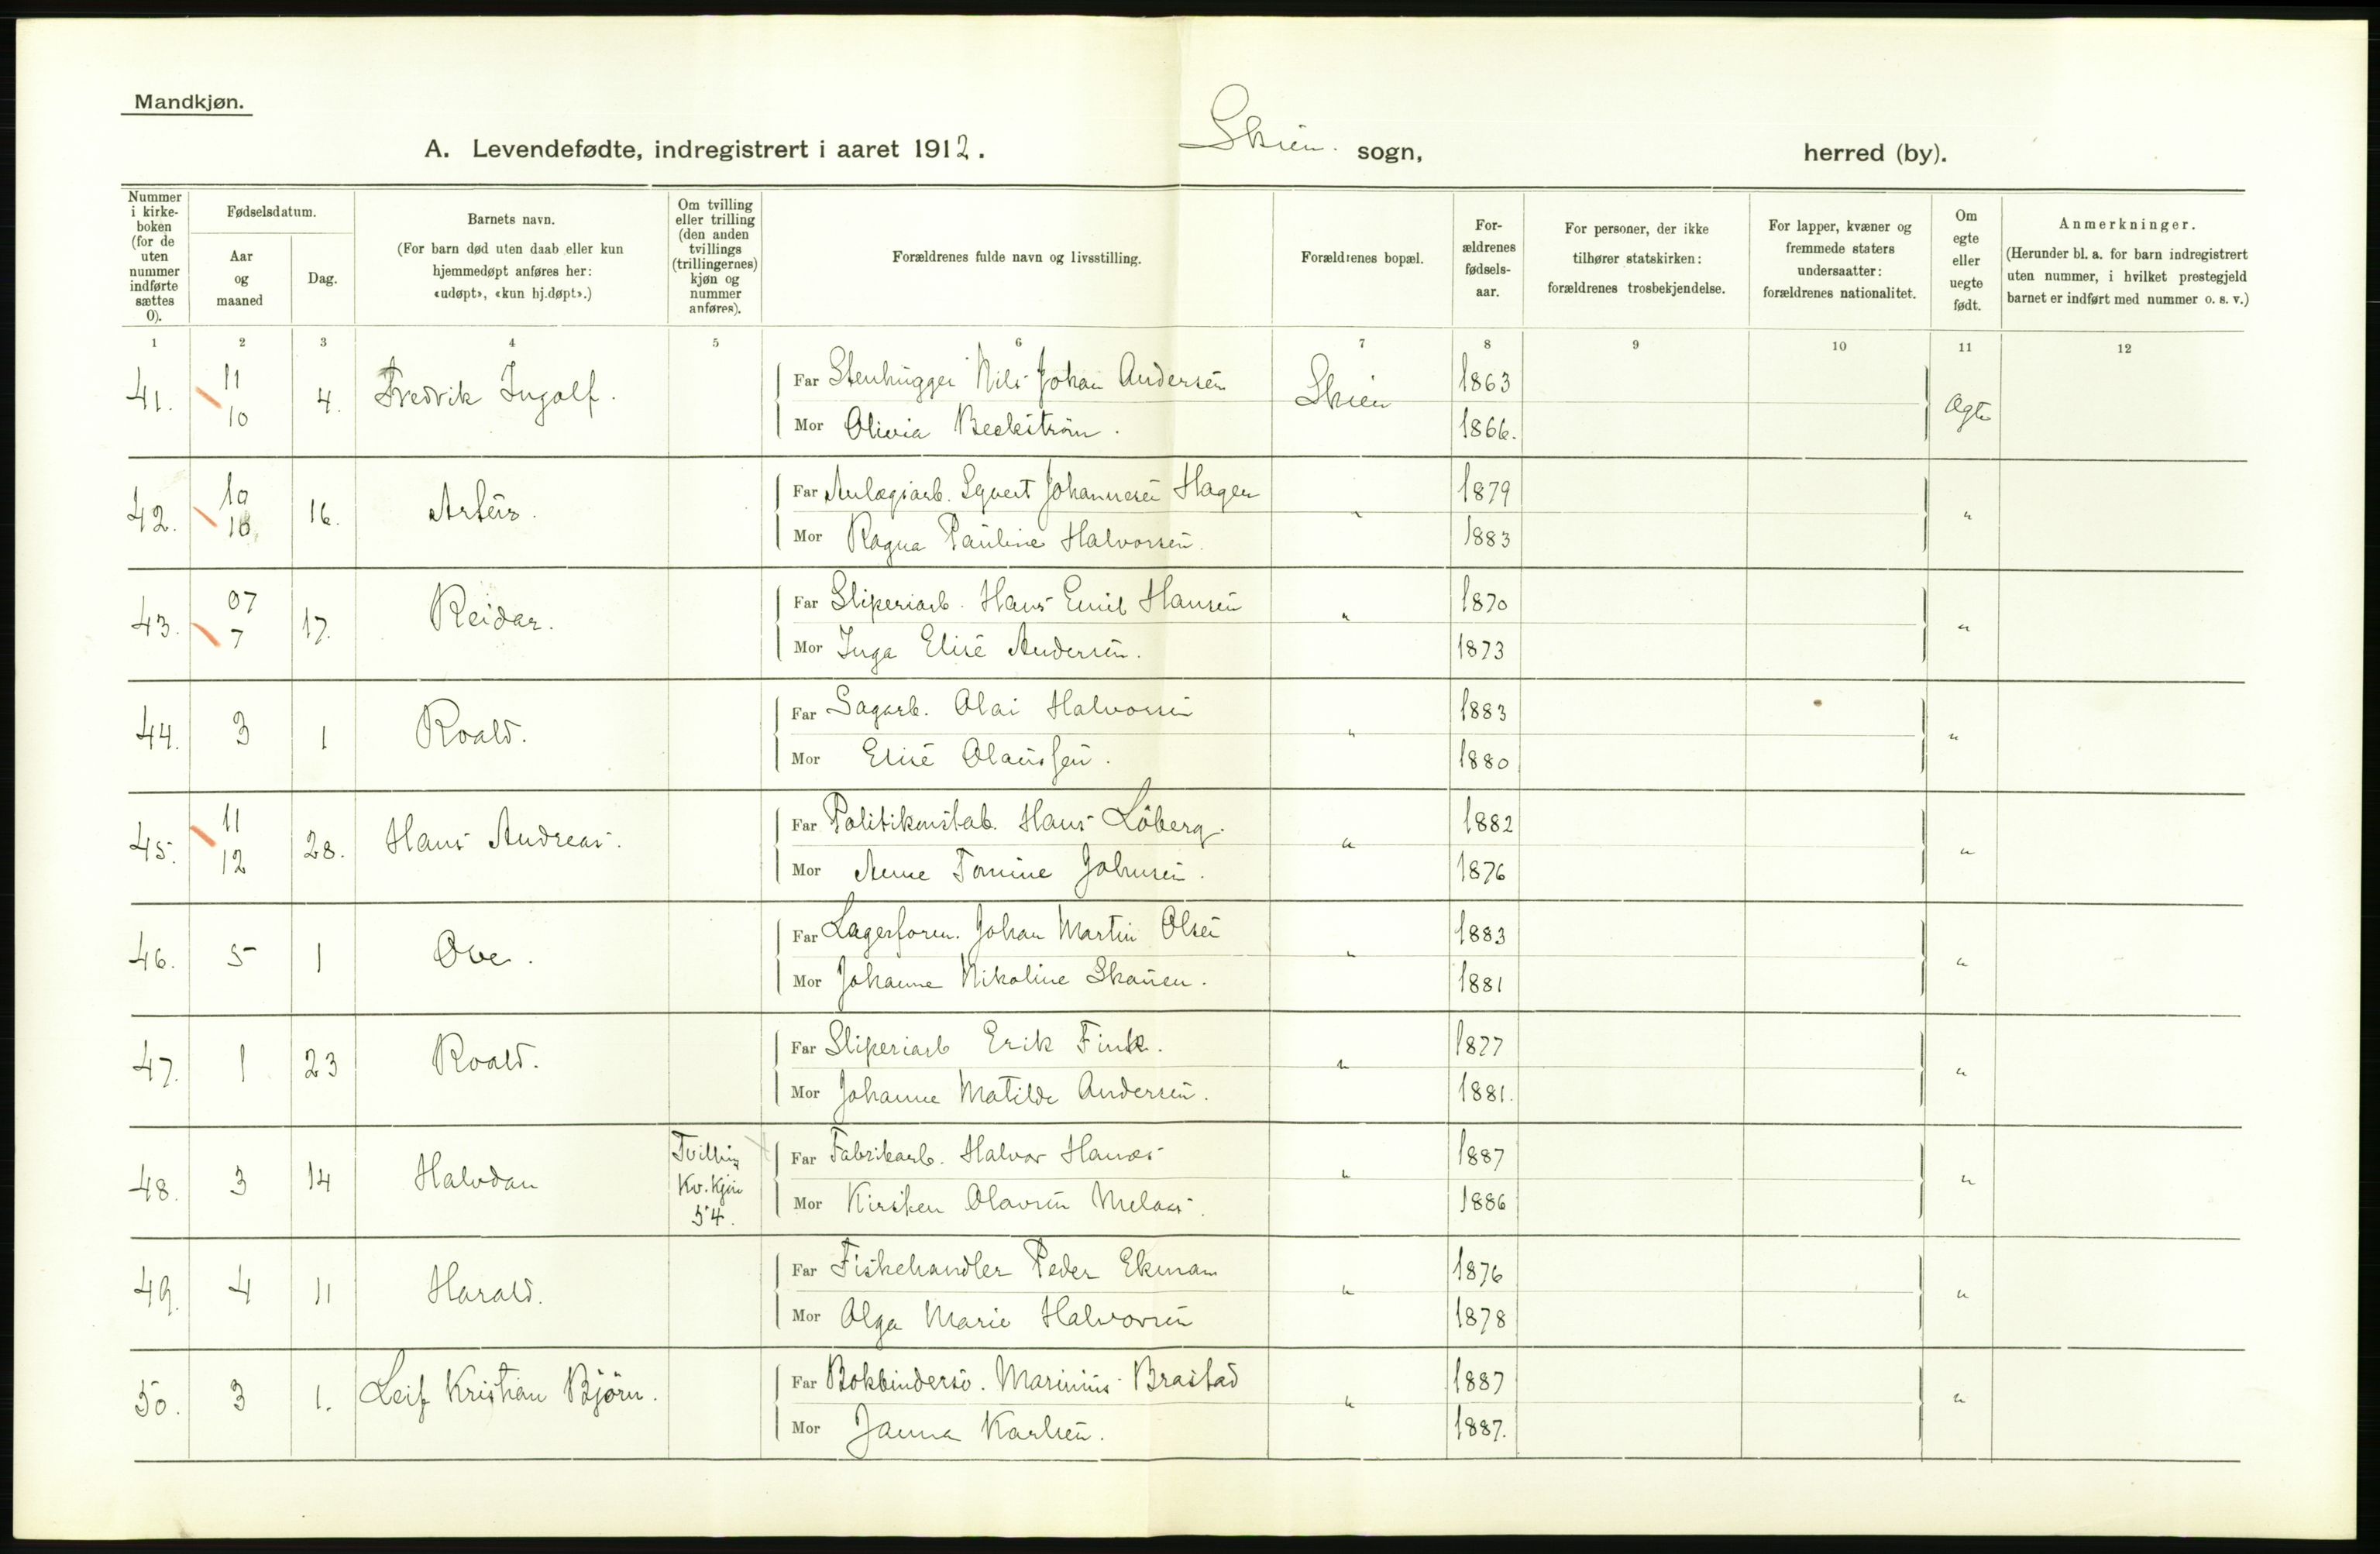 Mandkjøn.
A. Levendefødte, indregistrert i aaret 1912. Skien sogn, herred (by).
Nummer i kirkeboken (for de uten nummer indførte sættes 0).
Fødselsdatum.
Aar og maaned
Dag.
Barnets navn.
(For barn død uten daab eller kun hjemmedøpt anføres her: «udøpt», «kun hj.døpt».)
Om tvilling eller trilling (den anden tvillings (trillingernes) kjøn og nummer anføres).
Forældrenes fulde navn og livsstilling.
Forældrenes bopæl.
Forældrenes fødselsaar.
For personer, der ikke tilhører statskirken: forældrenes trosbekjendelse.
For lapper, kvæner og fremmede staters undersaatter: forældrenes nationalitet.
Om egte eller uegte født.
Anmerkninger.
(Herunder bl. a. for barn indregistrert uten nummer, i hvilket prestegjeld barnet er indført med nummer o. s. v.)
1 2 3 4 5 6 7 8 9 10 11 12
41. 11 10 4. Fredrik Ingolf. Far Stenhugger Nils Johan Andersen Skien 1863 Ægte
Mor Olivia Beckström. 1866.
42. 10 10 16. Arturs. Far Anlægsarb. Sqvert Johannesen Hagen " 1879 "
Mor Ragna Pauline Halvorsen. 1883
43. 07 7 17. Reidar. Far Sliperiarb. Hans Emil Hansen " 1870 "
Mor Inga Elise Andersen. 1873
44. 3 1 Roald. Far Sagarb. Olai Halvorsen " 1883 "
Mor Elise Olaussen. 1880
45. 11 12 28. Hans Andreas. Far Politikonstab. Hans Löberg. " 1882 "
Mor Anne Tomine Johnsen. 1876
46. 5 1 Ove. Far Lagerform. Johan Martin Olsen " 1883 "
Mor Johanne Nikoline Skauen. 1881
47. 1 23 Roald. Far Sliperiarb Erik Fink. " 1877 "
Mor Johanne Matilde Andersen. 1881.
48. 3 14 Halvdan Tvilling Kv. Kjön 54. Far Fabrikarb. Halvor Hanæs " 1887 "
Mor Kirsten Olavsen Melaas. 1886
49. 4 11 Harald. Far Fiskehandler Peder Ekmann " 1876 "
Mor Olga Marie Halvorsen 1878
50. 3 1. Leif Kristian Björn. Far Bokbindersv. Marinius Brastad " 1887 "
Mor Janna Karlsen. 1887.